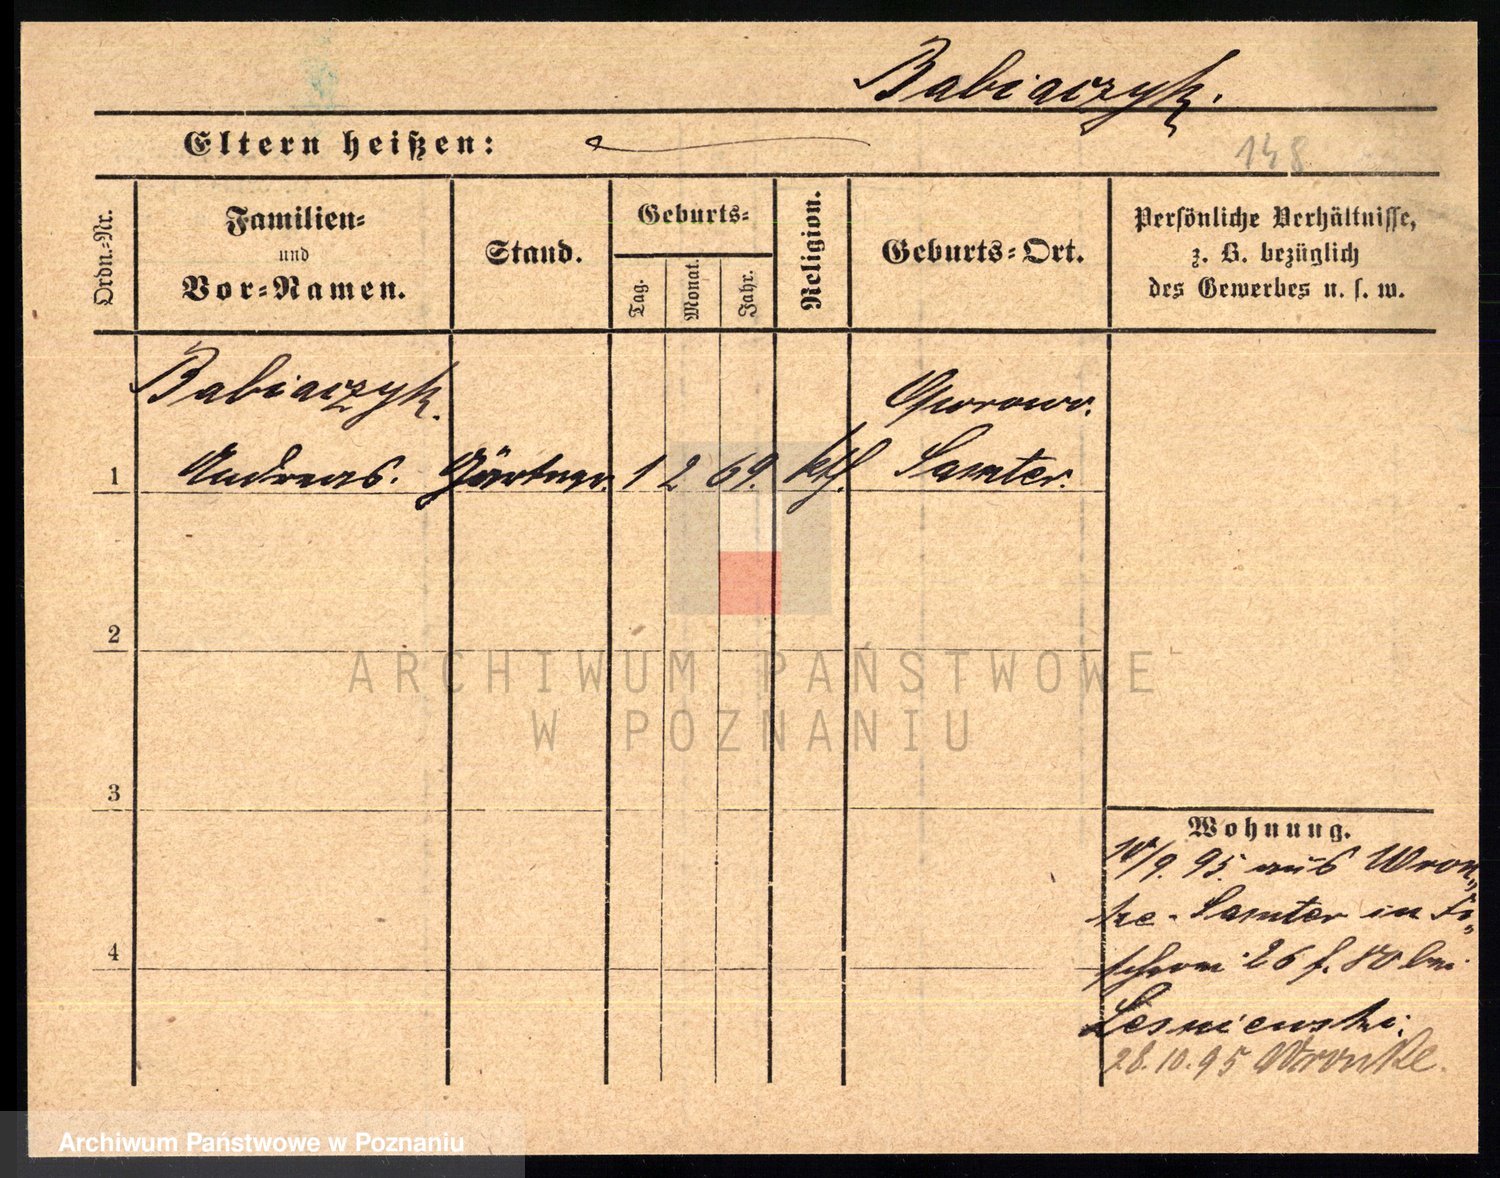 Babiaczyk.
Eltern heißen:
148
Ordn.-Nr.
Familien-
und
Vor-Namen.
Stand.
Geburts-
Tag.
Monat.
Jahr.
Religion.
Geburts-Ort.
Persönliche Verhältnisse,
z. B. bezüglich
des Gewerbes u. s. w.
Babiaczyk.
Oporowo.
1 Andreas. Gärtner. 1 2 69. kth. Samter.
2
ARCHIWUM PAŃSTWOWE
W POZNANIU
3
Wohnung.
/9. 95. aus Wron-
ke-Samter in
4
26 f. bei
Lesniewski.
28.10.95 Wronke.
Archiwum Państwowe w Poznaniu